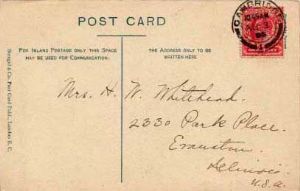 POST CARD
CAMBRIDGE
FOR INLAND POSTAGE ONLY THIS SPACE
MAY BE USED FOR COMMUNICATION.
THE ADDRESS ONLY TO BE
WRITTEN HERE
Mrs. H. W. Whitehead.
2330 Park Place.
Evanston
Illinois
U.S.A.
& Co. Post Card Publ., London E.C.